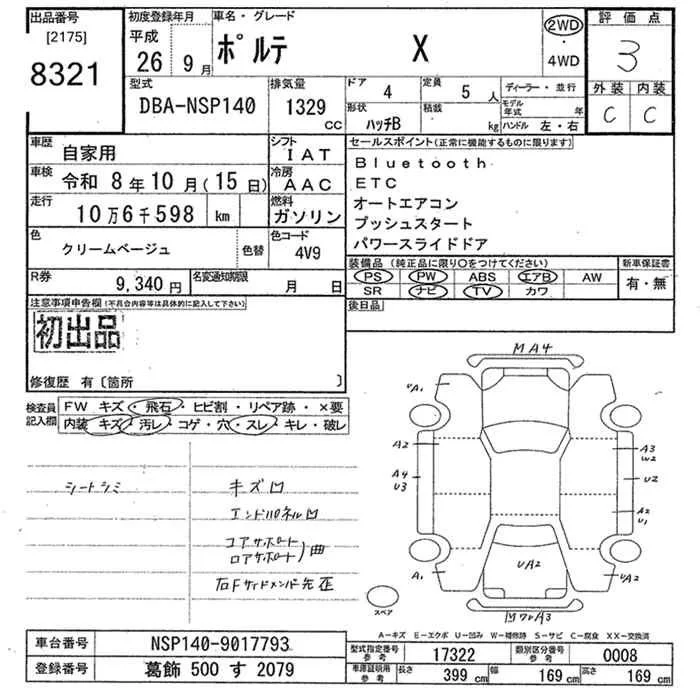 出品番号
[2175]
8321
初度登録年月
平成
26 9月
車名・グレード
ポルテ X
2WD
・
4WD
評価点
3
外装 内装
C C
型式
DBA-NSP140
排気量
1329 CC
ドア 4
定員 5 人
形状 ハッチB
積載 kg
ディーラー・並行
モデル年式 年
ハンドル 左・右
車歴 自家用
シフト IAT
車検 令和 8年 10月(15日)
冷房 AAC
走行 10万6千598 km
燃料 ガソリン
色 クリームベージュ 色替
色コード 4V9
R券 9,340円
名変通知期限 月 日
セールスポイント(正常に機能するものに限ります)
Bluetooth
ETC
オートエアコン
プッシュスタート
パワースライドドア
装備品 (純正品に限り○をつけてください)
PS PW ABS エアB AW
SR ナビ TV カワ
新車保証書
有・無
後日品
注意事項申告欄(不具合内容等は具体的に記入して下さい)
初出品
修復歴 有〔箇所 〕
検査員記入欄
FW キズ・飛石・ヒビ割・リペア跡・×要
内装 キズ・汚レ・コゲ・穴・スレ・キレ・破レ
シートシミ
キズ凹
エンドパネル凹
コアサポート
ロアサポート)曲
MA4
A1
A2
A3
W2
A4
U3
U2
A2
U1
A1
UA2
UA2
スペア
A-キズ E-エクボ U-凹み W-補修跡 S-サビ C-腐食 XX-交換済
車台番号 NSP140-9017793
登録番号 葛飾 500 す 2079
型式指定番号 参考 17322
類別区分番号 参考 0008
車庫証明用 参考
長さ 399 cm
幅 169 cm
高さ 169 cm